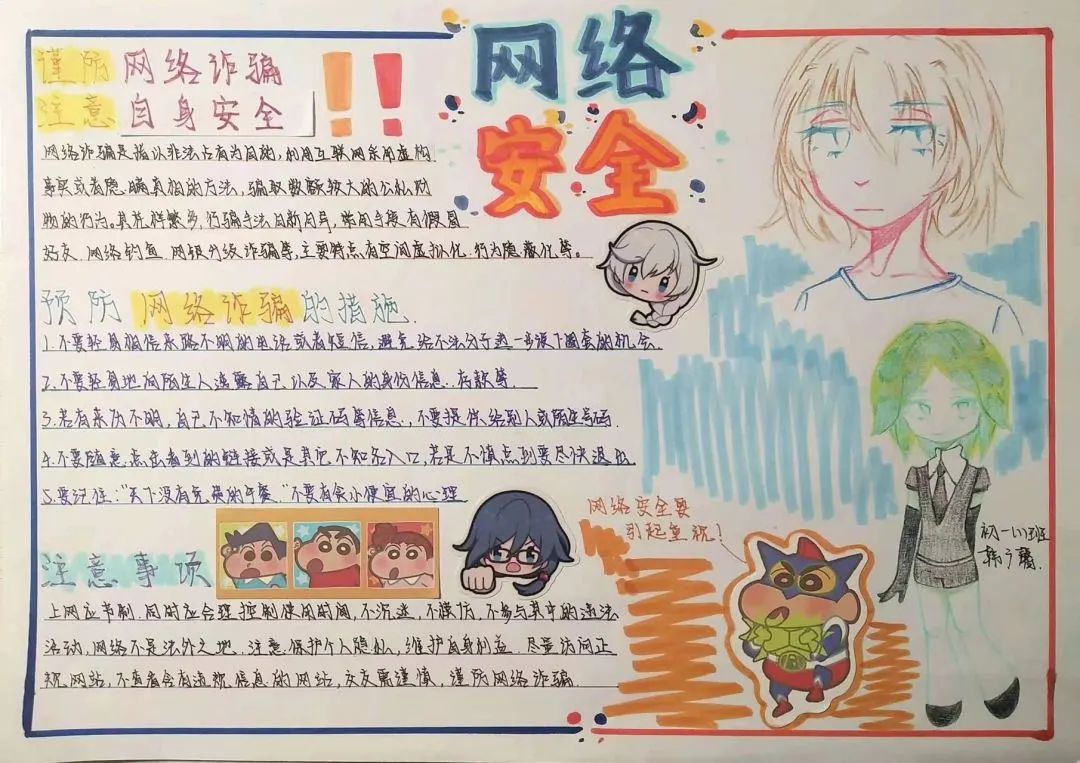 网络
安全
谨防 网络诈骗
注意 自身安全
!!
网络诈骗是指以非法占有为目的,利用互联网采用虚构
事实或者隐瞒真相的方法,骗取数额较大的公私财
物的行为。其花样繁多,行骗手法日新月异,常用手段有假冒
好友、网络钓鱼、网银升级诈骗等,主要特点有空间虚拟化、行为隐蔽化等。
预防 网络诈骗的措施
1.不要轻易相信来路不明的电话或者短信,避免给不法分子进一步设下圈套的机会.
2.不要轻易地向陌生人透露自己以及家人的身份信息、存款等.
3.若有来历不明,自己不知情的验证码等信息,不要提供给别人或陌生号码.
4.不要随意点击看到的链接或是其它不知名入口,若是不慎点到要尽快退出
5.要记住:“天下没有免费的午餐”不要有贪小便宜的心理
注意事项
上网应节制,同时应合理控制使用时间,不沉迷,不模仿,不参与其中的违法
活动,网络不是法外之地,注意保护个人隐私,维护自身利益,尽量访问正
规网站,不查看含有违规信息的网站,交友需谨慎,谨防网络诈骗.
网络安全要
引起重视!
初一(1)班
韩